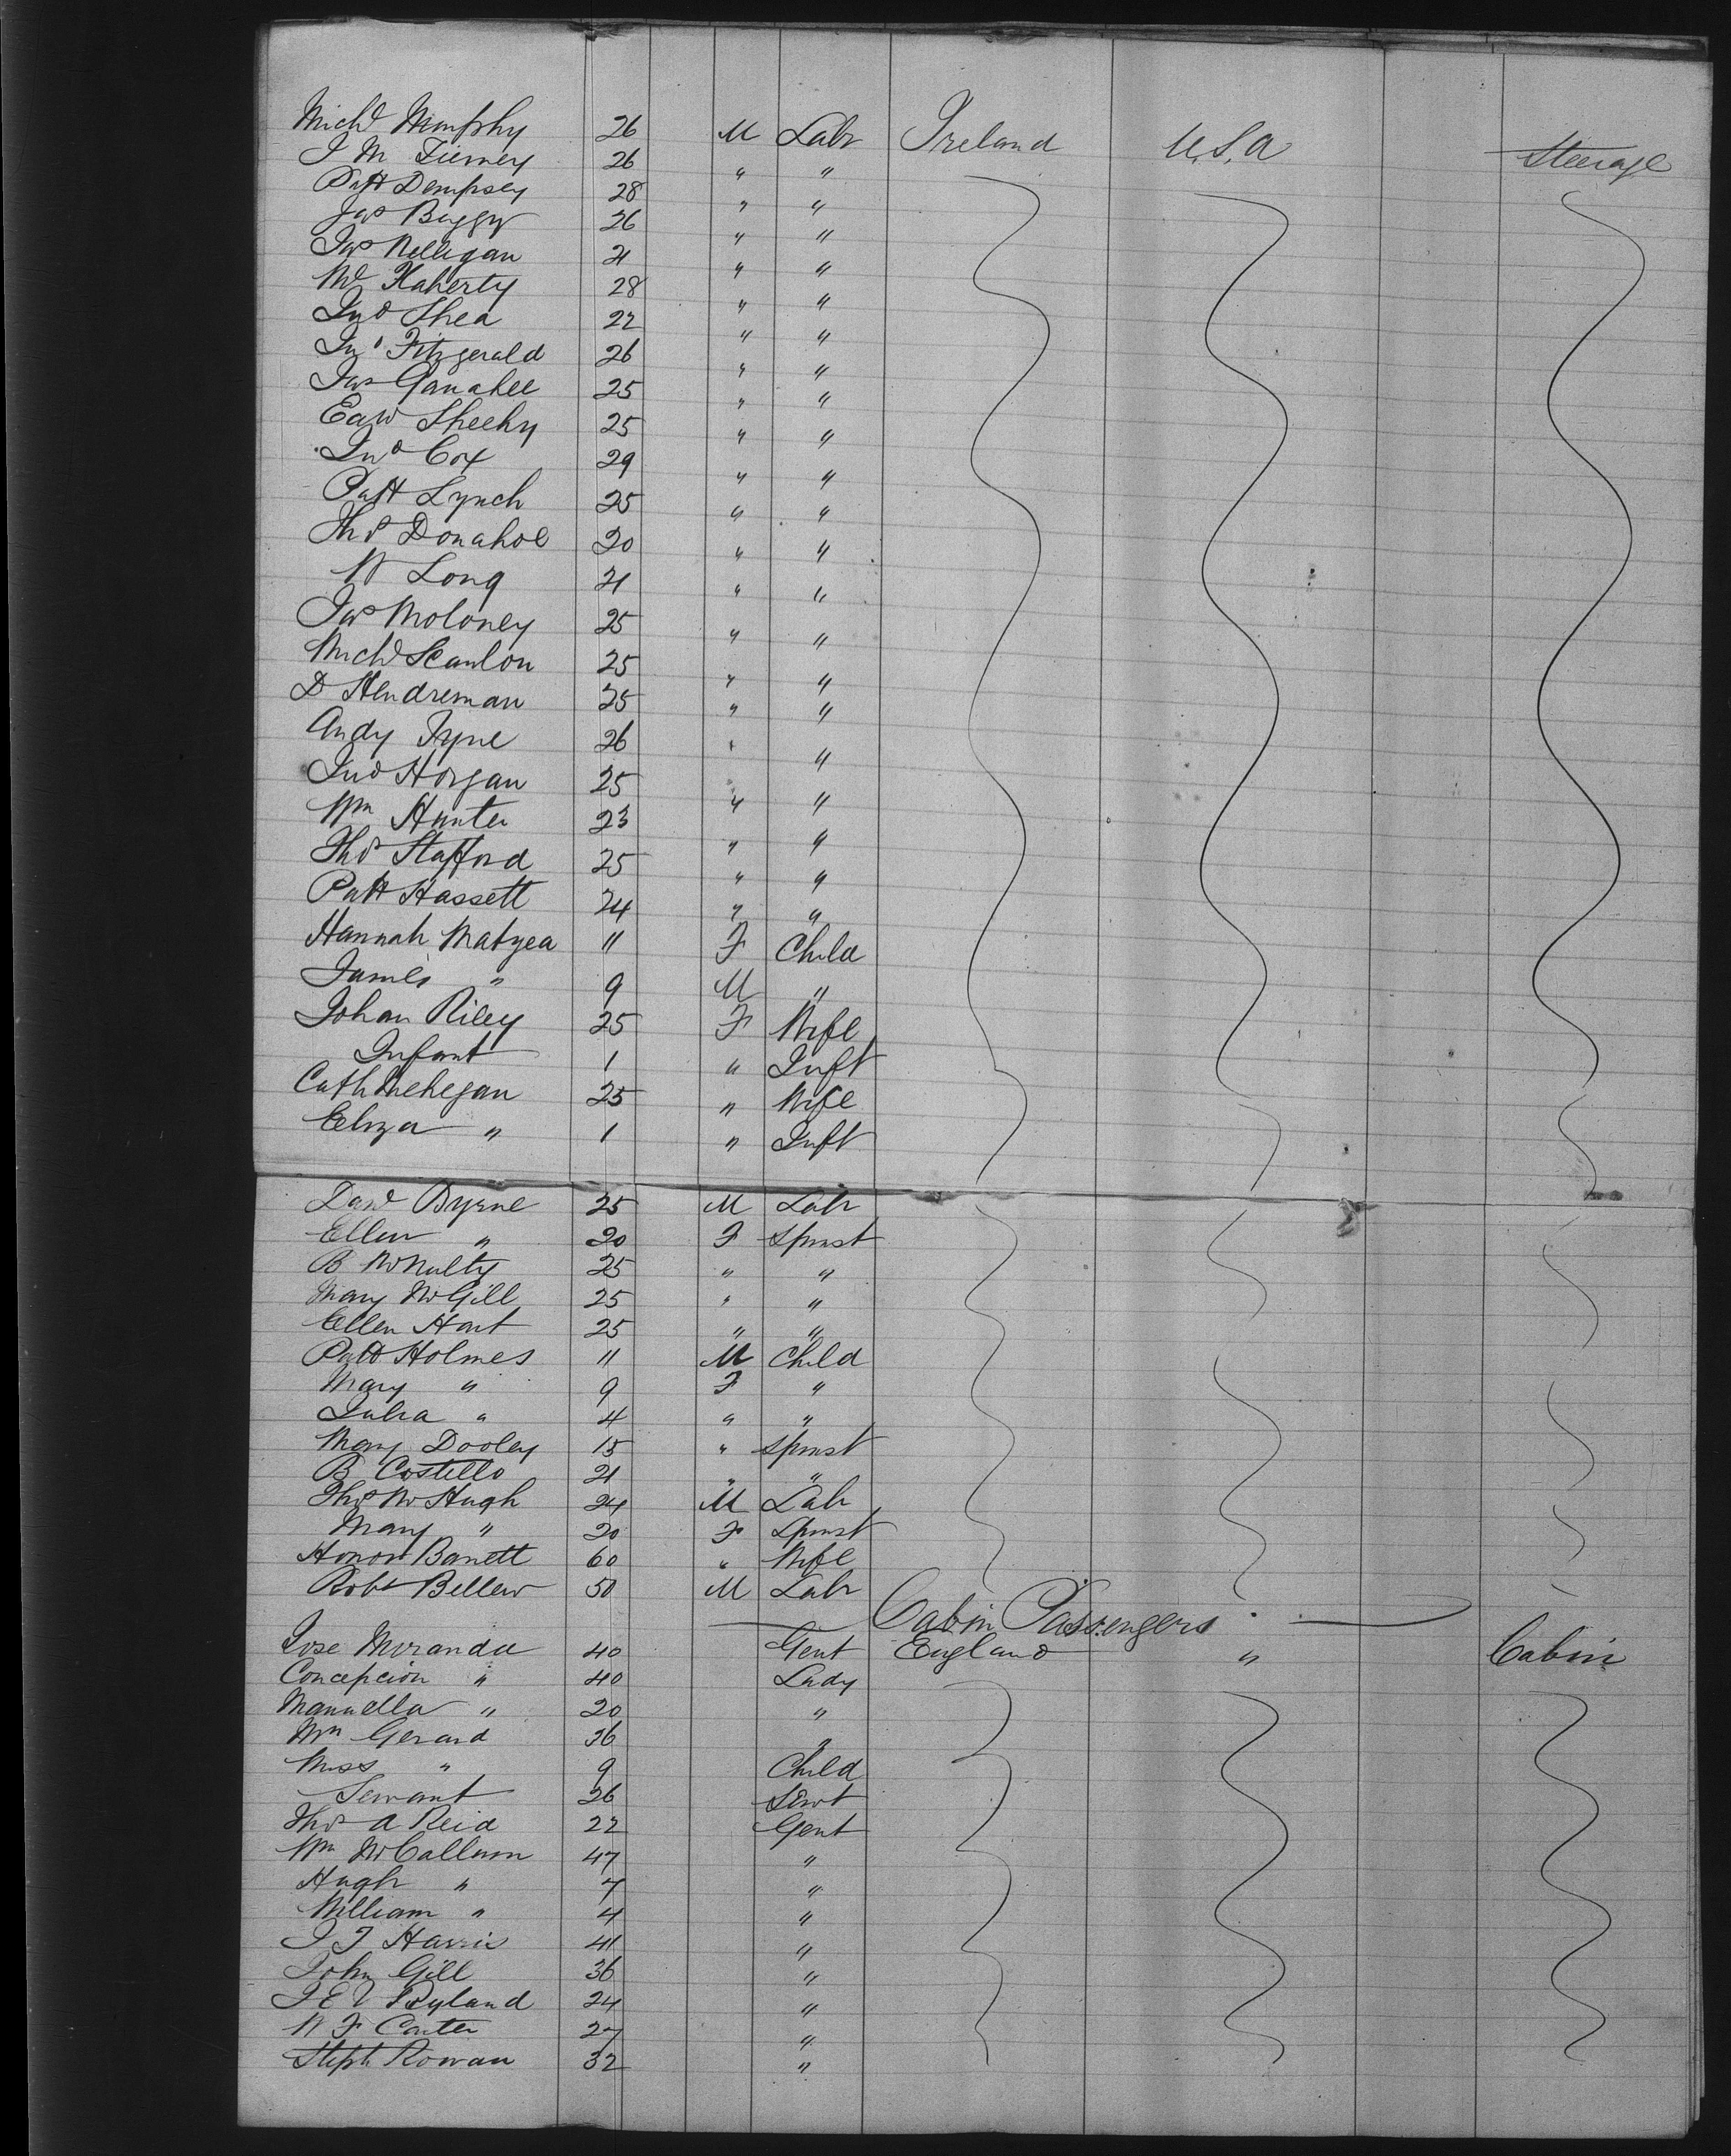 Michl Murphy 26 M Labr Ireland U.S.A Steerage
J M Tierney 26 " "
Patt Dempsey 28 " "
Jas Buggy 26 " "
Jas Nelligan 21 " "
Ml Flaherty 28 " "
Jno Shea 22 " "
Jno Fitzgerald 26 " "
Jas 25 " "
Edw Sheehy 25 " "
Jno Cox 29 " "
Patt Lynch 25 " "
Thos Donahoe 20 " "
W Long 21 " "
Jas Moloney 25 " "
Michl Scanlon 25 " "
D Hendreman 25 " "
Andy Tyne 26 " "
Jno Horgan 25 " "
Wm Hunter 23 " "
Thos Stafford 25 " "
Patt Hassett 24 " "
Hannah Matzea 11 F Child
James " 9 M "
Johan Riley 25 F Wife
Infant 1 " Inft
Cath Mehegan 25 " Wife
Eliza " 1 " Inft
Davd Byrne 25 M Labr
Ellen " 20 F Spinst
B McNulty 25 " "
Mary McGill 25 " "
Ellen Hart 25 " "
Patt Holmes 11 M Child
Mary " 9 F "
Julia " 4 " "
Mary Dooley 15 " Spinst
B Costello 21 " "
Thos McHugh 24 M Labr
Mary " 20 F Spinst
Honor Barrett 60 " Wife
Robt Bellew 50 M Labr
Cabin Passengers
Jose Miranda 40 Gent England " Cabin
Concepcion " 40 Lady
Manuella " 20 "
Mrs Gerard 36 "
Miss " 9 Child
Servant 26 Servt
Thos A Reid 22 Gent
Wm McCallum 47 "
Hugh " 7 "
William " 4 "
J J Harris 41 "
John Gill 36 "
J E V Ryland 24 "
W F Carter 27 "
Steph Rowan 32 "